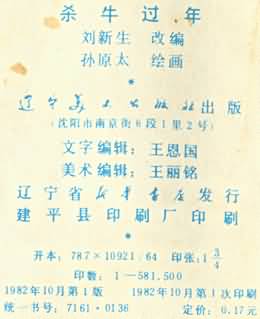 杀牛过年
刘新生 改编
孙原太 绘画
*
辽宁美术出版社出版
(沈阳市南京街6段1里2号)
文字编辑:王恩国
美术编辑:王丽铭
辽宁省新华书店发行
建平县印刷厂印刷
*
开本:787×10921/64 印张:1 3/4
印数:1—581,500
1982年10月第1版 1982年10月第1次印刷
统一书号:7161·0136 定价:0.17元